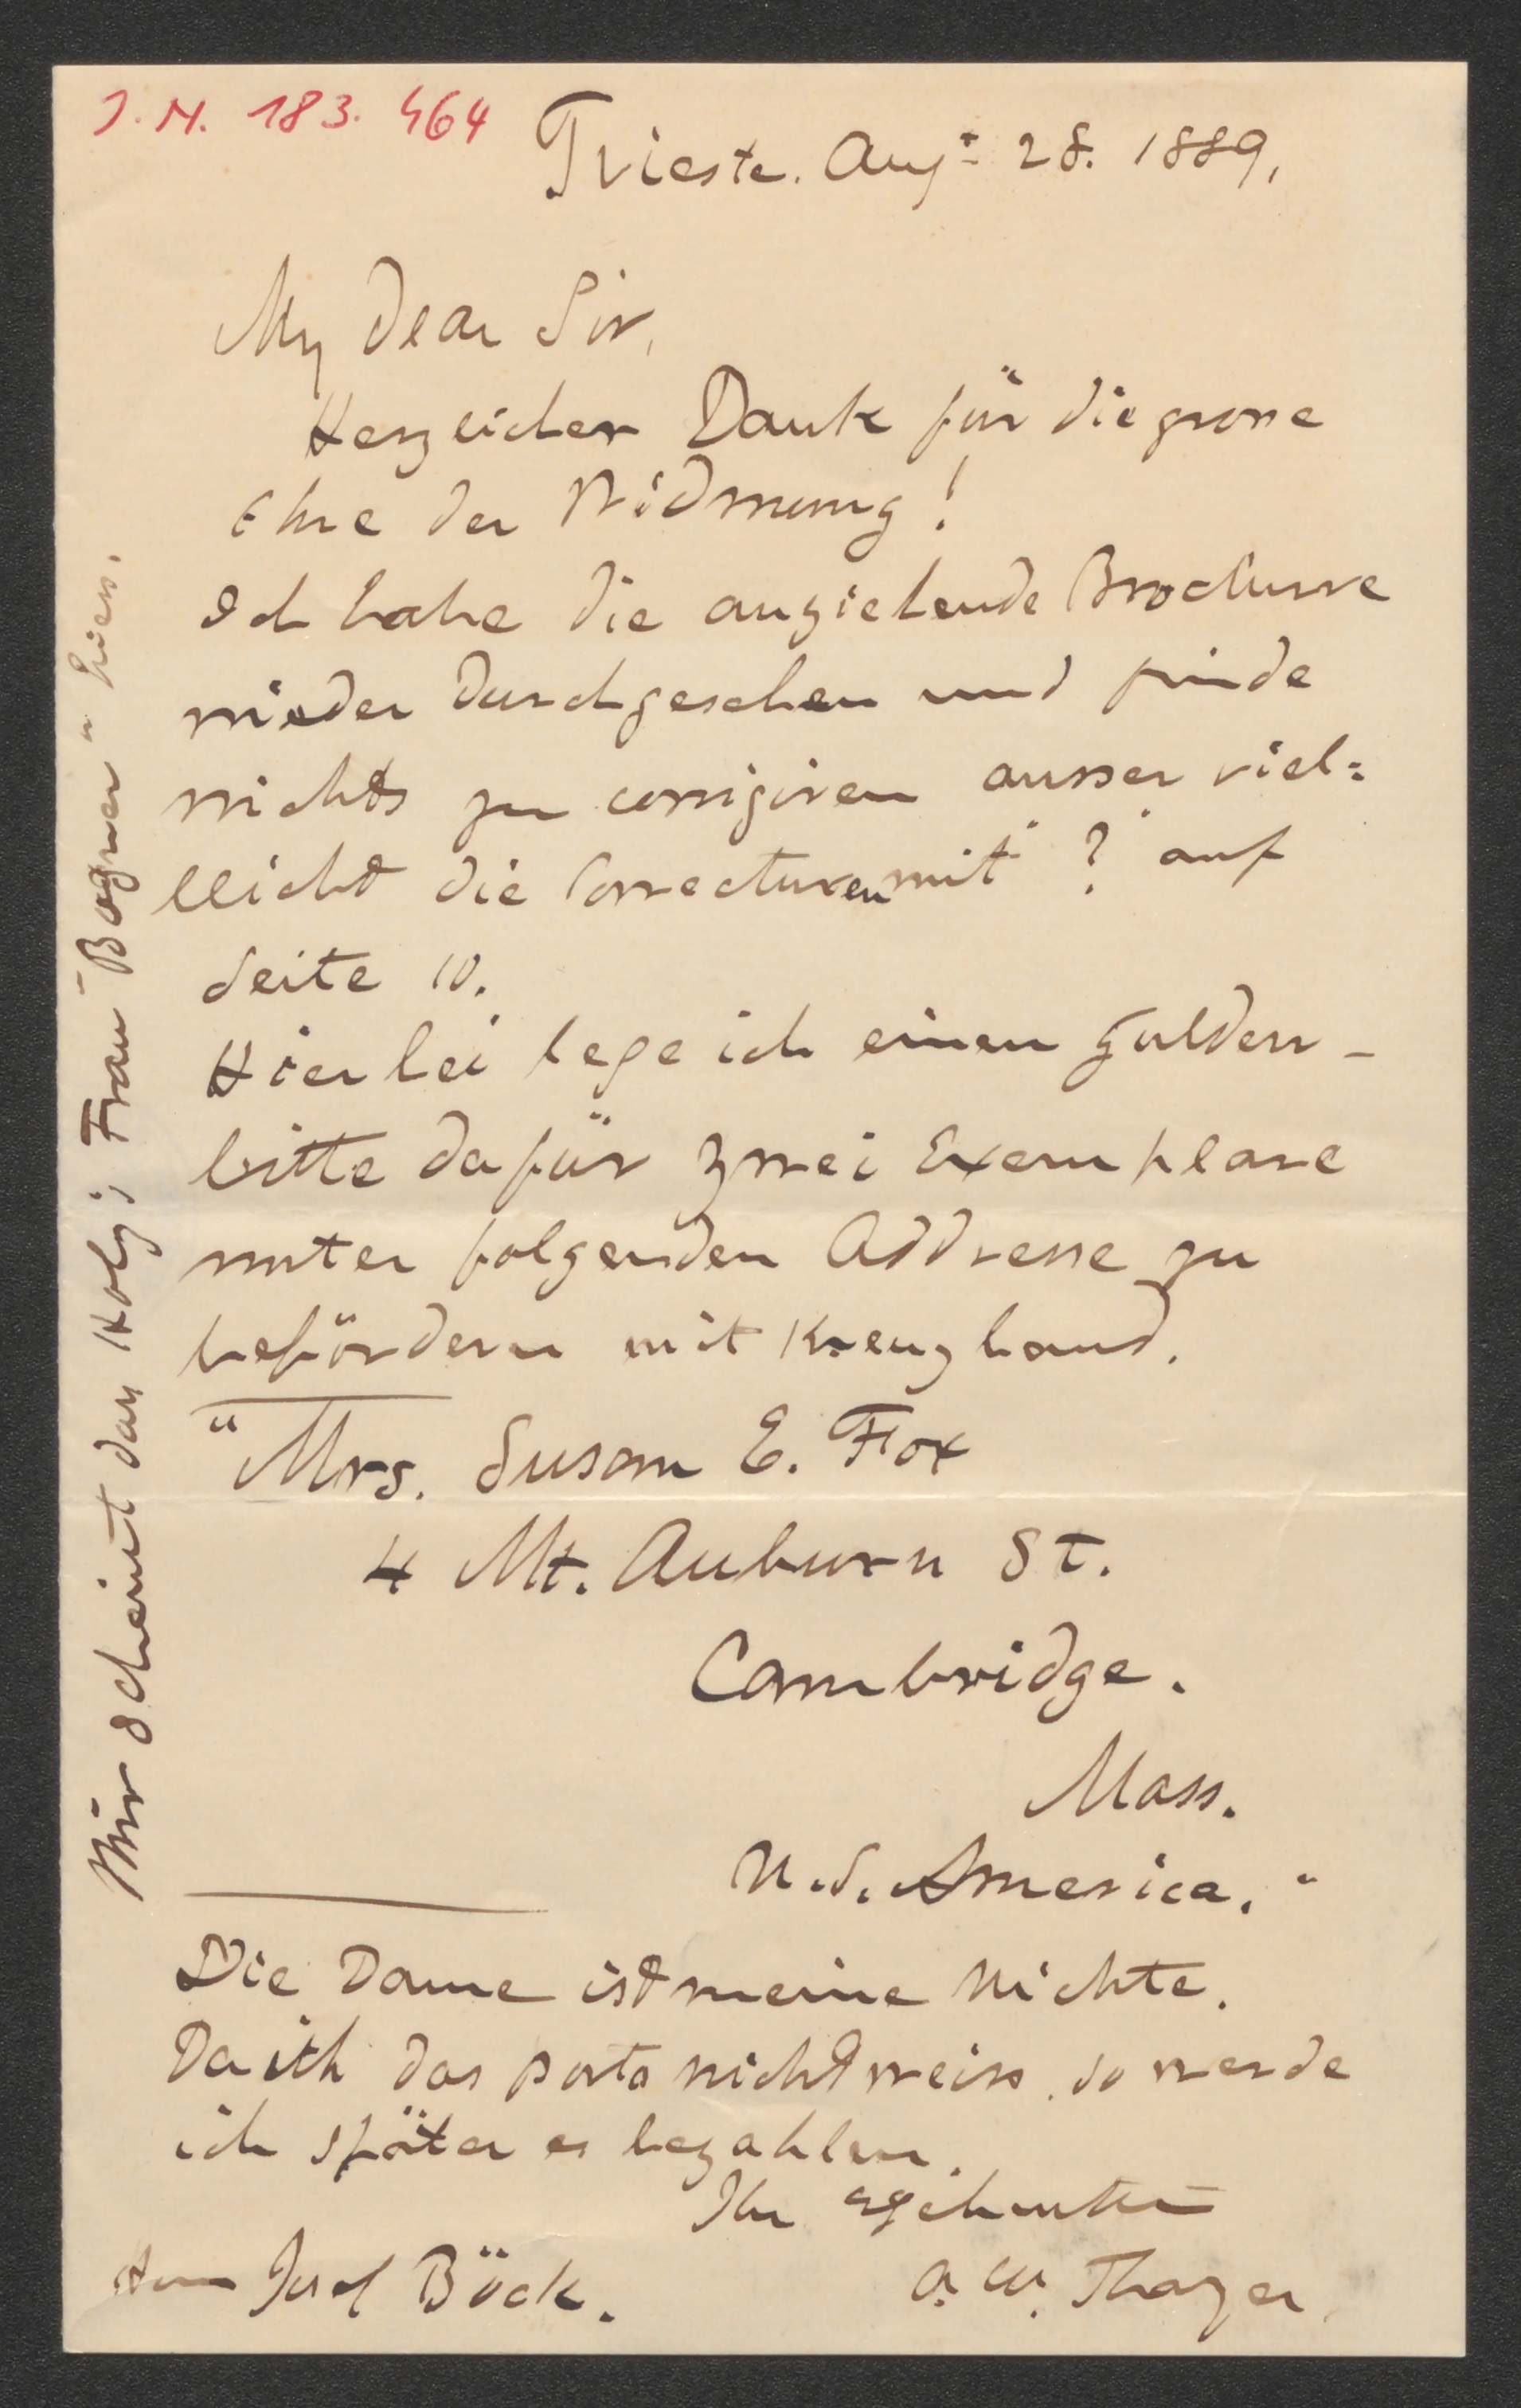 J. N. 183.464
Trieste. Augt 28. 1889.
My dear Sir,
Herzlicher Dank für die grosse
Ehre der Widmung!
Ich habe die anziehende Brochurre
wieder durchgesehen und finde
nichts zu corrigiren ausser viel=
leicht die Correcturen mit "?" auf
Seite 10.
Hierbei lege ich einen Gulden –
bitte dafür zwei Exemplare
unter folgenden Addresse zu
befördern mit Kreuzband.
"Mrs. Susan E. Fox
4 Mt. Auburn St.
Cambridge.
Mass.
U.S. America."
Die Dame ist meine Nichte.
Da ich das porto nicht weiss, so werde
ich später es bezahlen.
Ihr ergebenster
A. W. Thayer.
Herrn Josef Böck.
Mir scheint dass Holz; Frau "Bogner" hiess.